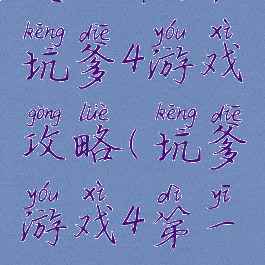 kēng diē yóu xì
坑爹4游戏
gōng lüè kēng diē
攻略(坑爹
yóu xì dì yī
游戏4第一